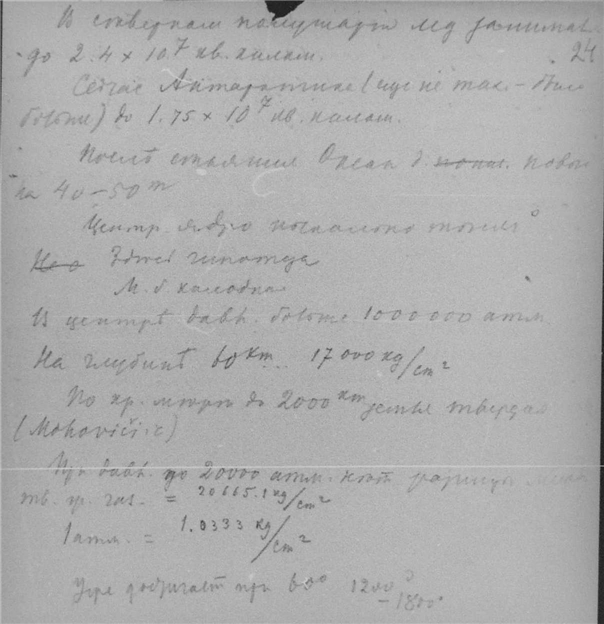 В северном полушарии лед занимал
24
до 2.4 × 10⁷ кв. килом.
Сейчас Антарктике (еще не так. – было
больше) до 1.75 × 10⁷ кв. килом.
Послѣ стаяния Океан д. повы
на 40–50 m
Центр. ядро
Здѣсь гипотеза
М. б. холодная
В центрѣ давл. больше 1000000 атм
На глубинѣ 60 km. 17000 kg/cm²
По кр. мѣрѣ до 2000 km земля твердая
(Mohovičić)
При давл. до 20000 атм. нѣт разницы
тв. = 20665.1 kg/cm²
1 атм. = 1.0333 kg/cm²
Уже достигает при 60° 1200°
– 1800°